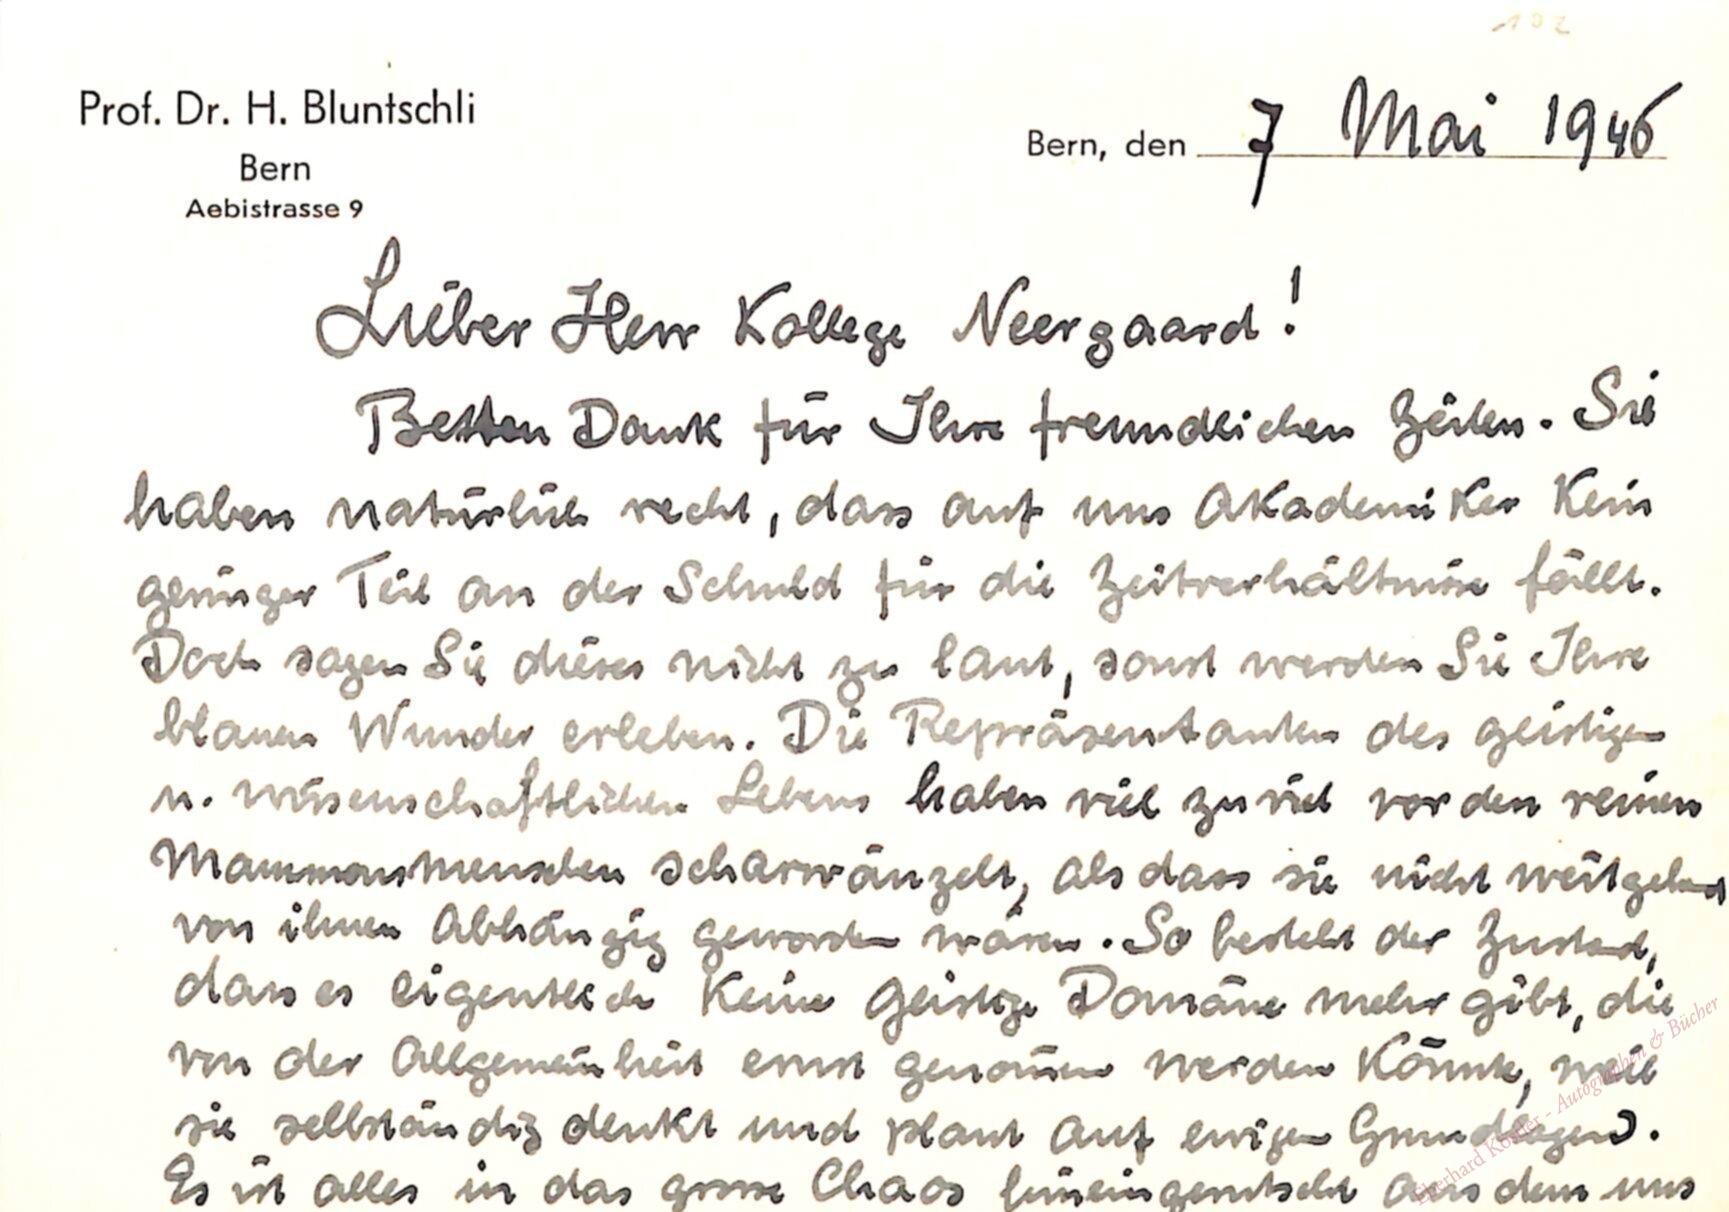 102
Prof. Dr. H. Bluntschli
Bern
Aebistrasse 9
Bern, den 7 Mai 1946
Lieber Herr Kollege Neergaard!
Besten Dank für Ihre freundlichen Zeilen. Sie
haben natürlich recht, dass auf uns Akademiker kein
geringer Teil an der Schuld für die Zeitverhältnisse fällt.
Doch sagen Sie dieses nicht zu laut, sonst werden Sie Ihre
blauen Wunder erleben. Die Repräsentanten des geistigen
u. wissenschaftlichen Lebens haben viel zu viel vor den reinen
Mammonsmenschen scharwänzelt, als dass sie nicht weitgehend
von ihnen abhängig geworden wären. So besteht der Zustand,
dass es eigentlich keine geistige Domäne mehr gibt, die
von der Allgemeinheit ernst genom̄en werden könnte, weil
sie selbständig denkt und plant auf ewigen Grundlagen.
Es ist alles in das grosse Chaos hineingerutscht aus dem uns
Eberhard Köstler - Autographen & Bücher